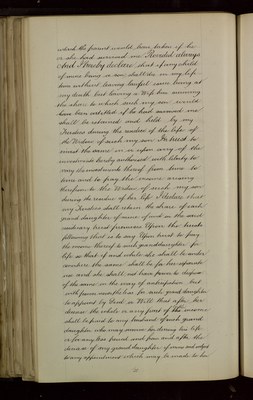 which the parent would have taken if he
or she had survived me Provided always
And I hereby declare that if any child
of mine being a son shall die in my life
time without leaving lawful issue living at
my death but leaving a Wife him surviving
the share to which such my son would
have been entitled if he had survived me
shall be retained and held by my
Trustees during the residue of the life of
the Widow of such my son In trust to
invest the same in or upon any of the
investments hereby authorized with liberty to
vary the investments thereof from time to
time and to pay the income arising
therefrom to the Widow of such my son
during the residue of her life I Declare that
my Trustees shall retain the share of each
granddaughter of mine of and in the said
residuary trust premises Upon the trusts
following that is to say Upon trust to pay
the income thereof to such granddaughter for
life so that if and while she shall be under
coverture the same shall be for her separate
use and she shall not have power to dispose
of the same in the way of anticipation but
with power nevertheless for such granddaughter
to appoint by Deed or Will that after her
decease the whole or any part of the income
shall be paid to any husband of such grand
daughter who may survive her during his life
or for any less period and from and after the
decease of any granddaughter of mine and subject
to any appointment which may be made to her